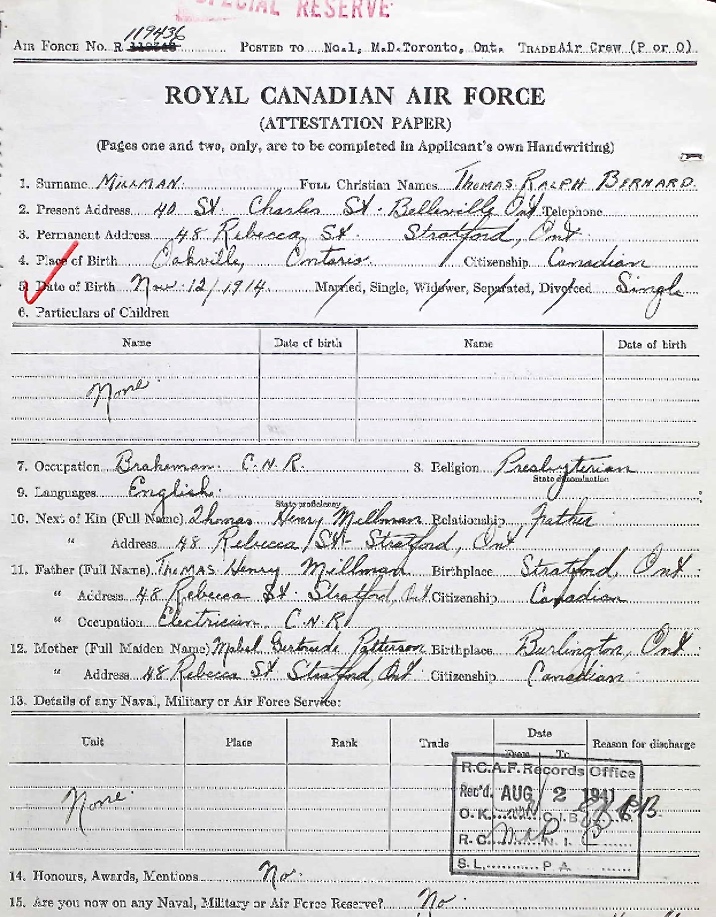 SPECIAL RESERVE
119436
AIR FORCE No. R POSTED TO No.1, M.D.Toronto, Ont. TRADE Air Crew (P or O)
ROYAL CANADIAN AIR FORCE
(ATTESTATION PAPER)
(Pages one and two, only, are to be completed in Applicant's own Handwriting)
1. Surname MILLMAN. FULL Christian Names THOMAS RALPH BERNARD.
2. Present Address 40 St. Charles St. Belleville Ont Telephone
3. Permanent Address 48 Rebecca St. Stratford, Ont.
4. Place of Birth Oakville, Ontario. Citizenship Canadian
5. Date of Birth Nov. 12/1914. Married, Single, Widower, Separated, Divorced Single
6. Particulars of Children
Name Date of birth Name Date of birth
None.
7. Occupation Brakeman. C.N.R. 8. Religion Presbyterian
State denomination
9. Languages English.
State proficiency
10. Next of Kin (Full Name) Thomas Henry Millman Relationship Father
" Address 48 Rebecca St- Stratford, Ont
11. Father (Full Name) THOMAS Henry Millman Birthplace Stratford, Ont.
" Address 48 Rebecca St. Stratford, Ont Citizenship Canadian
" Occupation Electrician C.N.R.
12. Mother (Full Maiden Name) Mabel Gertrude Patterson Birthplace Burlington, Ont.
" Address 48 Rebecca St Stratford, Ont Citizenship Canadian.
13. Details of any Naval, Military or Air Force Service:
Unit Place Rank Trade Date Reason for discharge
From To
None.
R.C.A.F. Records Office
Rec'd. AUG 2 1941
O.K. C.I.B.
R.C. N.I.
S.L. P.A.
14. Honours, Awards, Mentions No.
15. Are you now on any Naval, Military or Air Force Reserve? No.